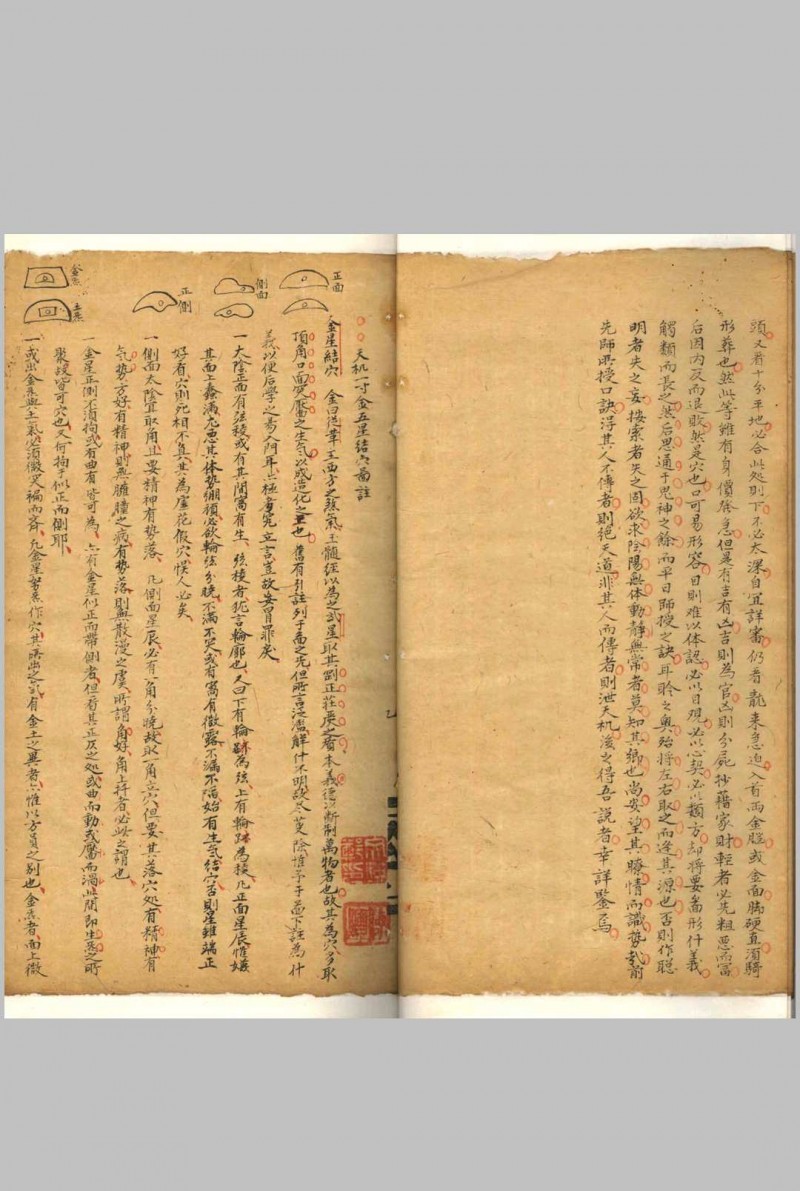 頭又看十分平地必合此処則下不必太深自宜詳審仍看龍来急迫入首而金脳或金面脚硬直湏騎
形葬也然此等雖有身價發急但是有吉有凶吉則為官凶則分屍抄藉家財輕者必先粗惡而富
后因内反而退敗然是穴也口可易形容目則难以体認必以目覌必以心契必以獨方却将要啚形仟義
觸類而長之然后思通于鬼神之餘而平日師授之訣耳聆之奥殆将左右取之而逢其源也否則作聪
明者失之妄按索者失之固欲求陰陽無体動静無常者莫知其鄉也尚安望其瞭情而識勢哉前
先師所授口訣淂其人不傳者則绝天道非其人而傳者則泄天机後之得吾説者幸詳鑒焉
天机一寸金五星结穴啚註
金星結穴 金曰從革王西方之煞氣玉髓經以為之武星取其剛正莊嚴之看本義德以斷制萬物者也故其為穴多取
頂角口面受靨之生气以成造化之量也舊有引註列于啚之先但所言泛濫解什不明故尽芟除惟予于啚下註為什
義以便后學之易入門耳亦極虗究立言豈故妄冒罪戾
一太陰正面有弦棱或有其開窩有生弦棱者犹言輪廓也又曰下有輪跡為弦上有輪跡為棱凡正面星辰惟嫌
其面上蠢滿尤忌其体势绷硬必欲輪弦分暁不滿不突或有窩有微露不漏不陷始有生气结穴否則星雖端正
好看穴則死相不真只其為虛花假穴悞人必矣
一側面太陰宜取角且要精神有勢落凡側面星辰必有一角分暁故以一角立穴但要其落穴処有精神有
气势方好有精神則無臃腫之病有勢落則無散漫之虞所謂角好角上扦者必此之謂也
一金星正側不湏拘或有曲有皆可為亦有金星似正而帶側者但看其正反之処或曲而動或靨而濁此閒即生气之所
聚墩皆可穴也又何拘于似正而側耶
一或出金氣與土氣必湏微突褊而斉凡金星皆忌作穴其所出之气有金土之異者亦惟以方員之别也金氣者面上微
正面
側面
正側
金氣
土氣